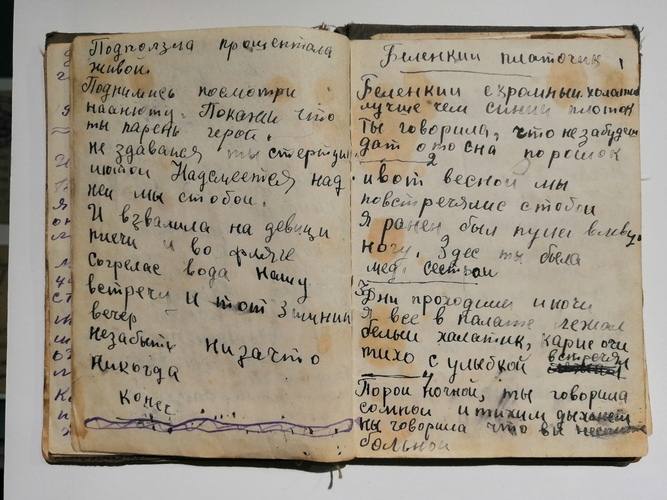 Подползла прошептала
живой.
Поднимись посмотри
на анюту. Покажи что
ты парень герой.
не здавайся ты смертушки
лютой Надсмеется над
ней мы стобой.
И взвалила на девици
плечи и во фляге
согрелас вода нашу
встречи И тот зимнии
вечер
незабыть низачто
никогда
Конец
Беленкии платочик
Беленкии скромныи халатик
лучше чем синии платок
Ты говорила, что незабудеш
дат ото сна порошок
2
ивот весной мы
повстречялис стобои
Я ранен был пули влеву
ногу. Здес ты была
мед. сестрои
3
Дни проходили иночи
Я все в палате лежал
белыи халатик, карие очи
тихо с улыбкой встречял
4
Порои ночной, ты говорила
сомнои итихим
ты говорила что вы
больнои